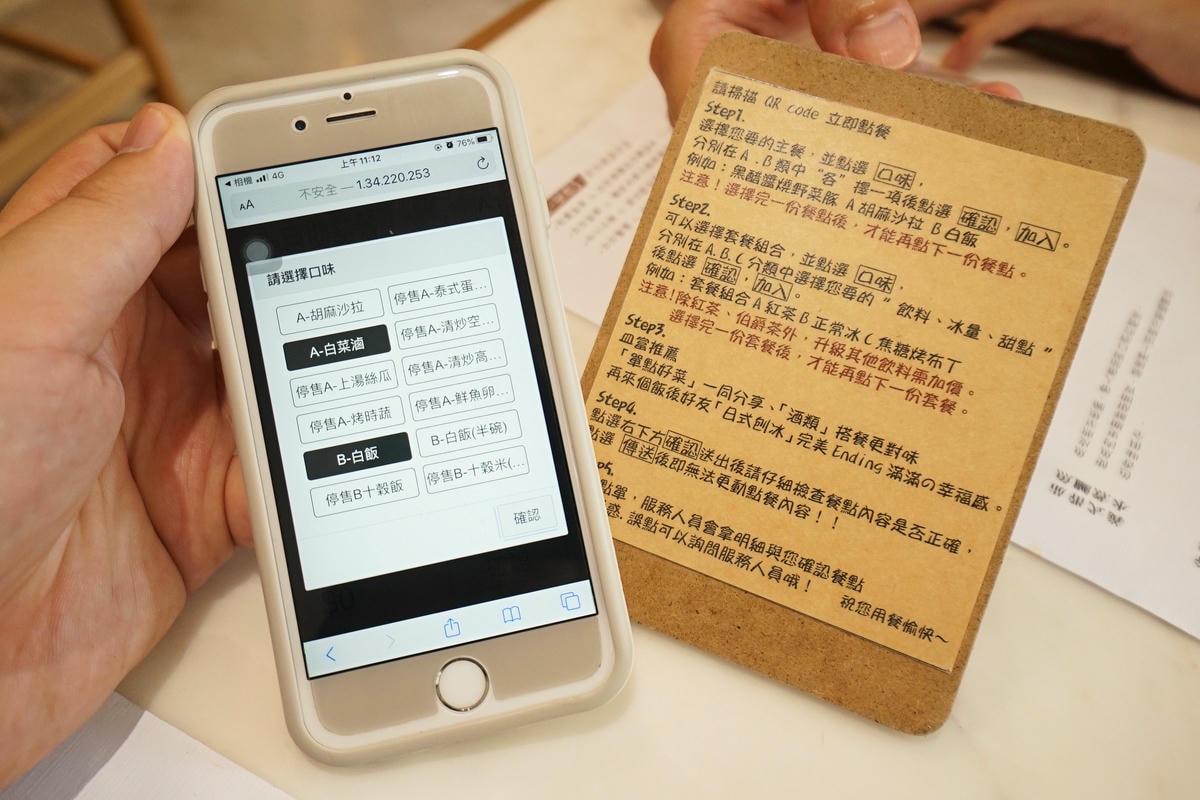 相機 4G
上午11:12
76%
AA
不安全 — 1.34.220.253
請選擇口味
A-胡麻沙拉
停售A-泰式蛋...
A-白菜滷
停售A-清炒空...
停售A-上湯絲瓜
停售A-清炒高...
停售A-烤時蔬
停售A-鮮魚卵...
B-白飯
B-白飯(半碗)
停售B十穀飯
停售B-十穀米(...
確認
請掃描 QR code 立即點餐
Step1.
選擇您要的主餐，並點選 口味，
分別在 A .B 類中 “各” 擇一項後點選 確認，加入。
例如：黑醋醬燒野菜豚 A 胡麻沙拉 B 白飯
注意！選擇完一份餐點後，才能再點下一份餐點。
Step2.
可以選擇套餐組合，並點選 口味，
分別在 A.B.C 分類中選擇您要的 ” 飲料、冰量、甜點 ”
後點選 確認，加入。
例如：套餐組合 A 紅茶 B 正常冰 C 焦糖烤布丁
注意！除紅茶、伯爵茶外，升級其他飲料需加價。
選擇完一份套餐後，才能再點下一份套餐。
Step3.
皿富推薦
「單點好菜」一同分享、「酒類」搭餐更對味
再來個飯後好友「日式刨冰」完美 Ending 滿滿の幸福感。
Step4.
點選右下方確認送出後請仔細檢查餐點內容是否正確，
點選 傳送後即無法更動點餐內容！！
點單，服務人員會拿明細與您確認餐點
惑.誤點可以詢問服務人員哦！
祝您用餐愉快～